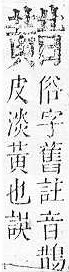 俗字舊註音鵲
皮淡黃也誤